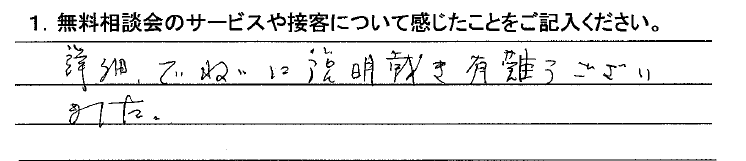 1. 無料相談会のサービスや接客について感じたことをご記入ください。
詳細、でねいに説明戴き有難うござい
ました。